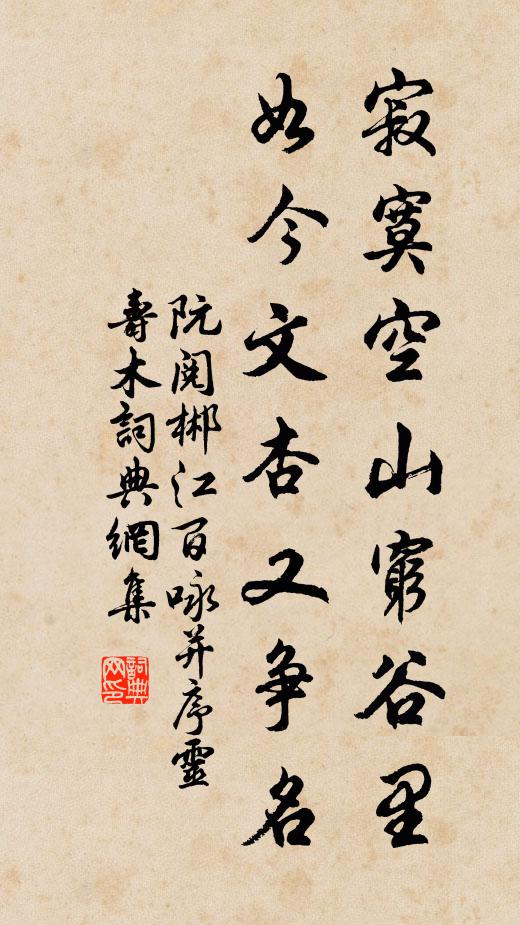 寂寞空山窮谷里
如今文杏又争名
阮閱郴江百咏并序靈
壽木詞典網集
詞典网印